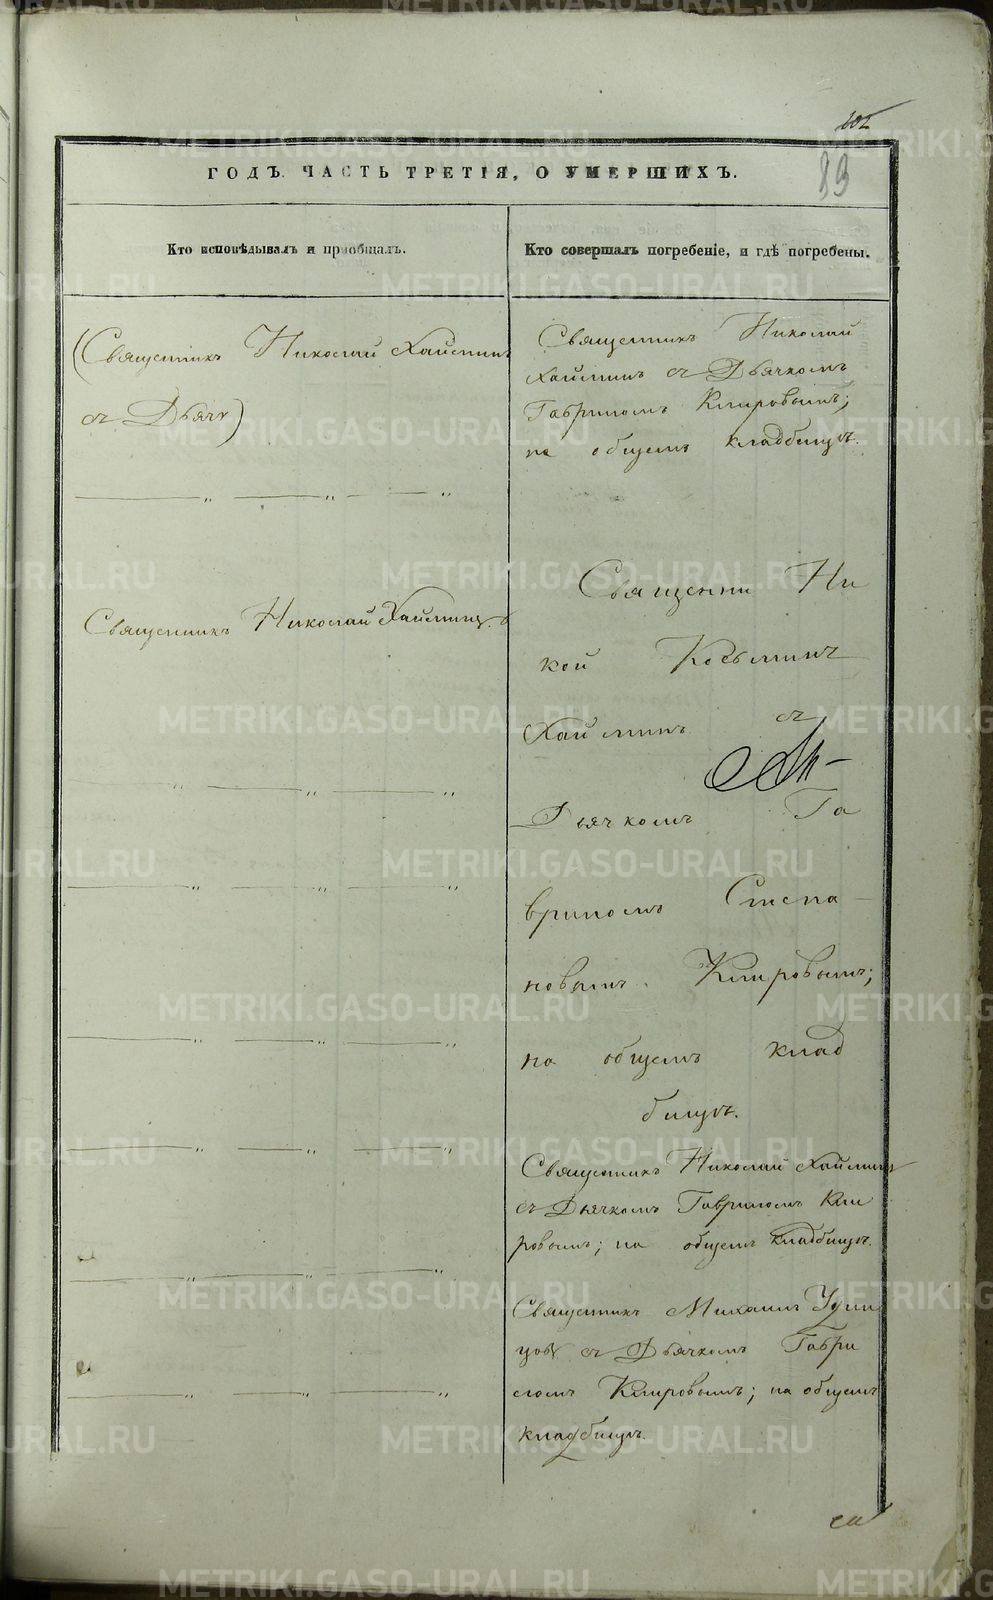 102
89
ГОДЪ. ЧАСТЬ ТРЕТІЯ, О УМЕРШИХЪ.
Кто исповѣдывалъ и пріобщалъ.
Кто совершалъ погребеніе, и гдѣ погребены.
(Священникъ Николай Хаймин
съ Дьяч)
Священникъ Николай Хайминъ
Священникъ Николай
Хайминъ съ Дьячкомъ
Гавриломъ Кпировымъ;
на общемъ кладбищѣ.
Священни Ни
кой Косьминъ
Хайминъ съ
Дьячкомъ Га
вриломъ Степа
новымъ Кпировымъ;
на общемъ клад
бищѣ.
Священникъ Николай Хаймин
съ Дьячкомъ Гавриломъ Кпи
ровымъ; на общемъ кладбищѣ.
Священникъ Михаилъ
съ Дьячкомъ Гаври
ломъ Кпировымъ; на общемъ
кладбищѣ.
METRIKI.GASO-URAL.RU